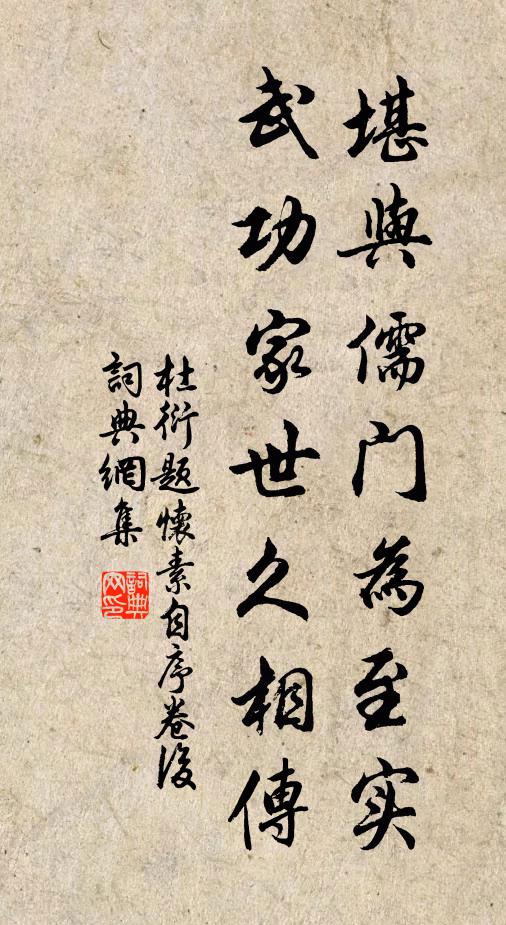 堪與儒門為至实
武功家世久相傳
杜衍题懷素自序卷後
詞典網集
詞典网印